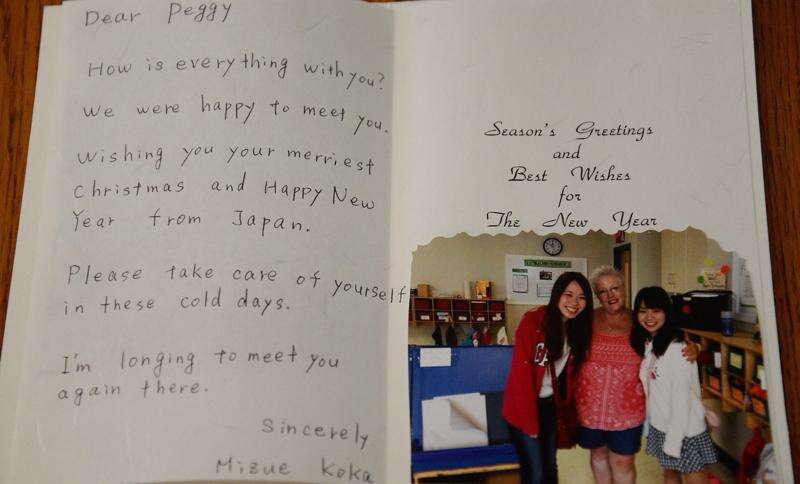 Dear Peggy
How is everything with you?
We were happy to meet you.
Wishing you your merriest
Christmas and Happy New
Year from Japan.
Please take care of yourself
in these cold days.
I'm longing to meet you
again there.
Sincerely
Mizue Koka
Season's Greetings
and
Best Wishes
for
The New Year